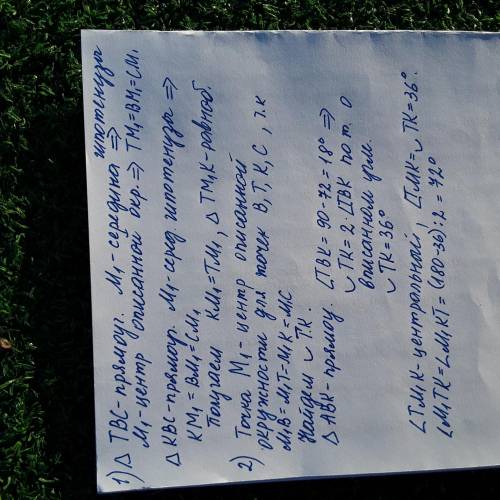 1) △ TBC-прямоуг. M₁-середина гипотенузы
M₁-центр описанной окр. ⇒ TM₁=BM₁=CM₁
△ KBC-прямоуг. M₁-серед гипотенузы ⇒
KM₁=BM₁=CM₁
Получаем KM₁=TM₁, △ TM₁K-равноб.
2) Точка M₁-центр описанной
окружности для точек B,T,K,C, т.к
M₁B=M₁T=M₁K=MC
Найдем ◡ TK.
△ ABK-прямоуг. ∠TBK=90-72=18° ⇒
◡ TK=2·∠TBK по т. о
вписанном угле.
◡ TK=36°
∠TM₁K-центральный ∠TMK=◡ TK=36°.
∠M₁TK=∠M₁KT=(180-36):2=72°